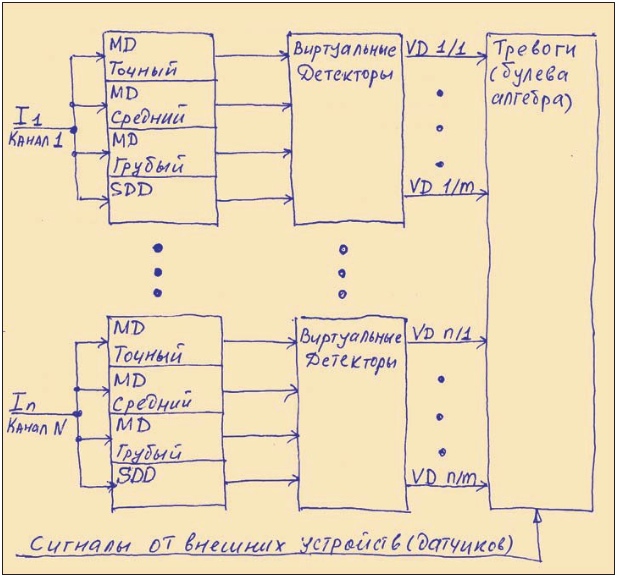 MD
Точный
MD
Средний
MD
Грубый
SDD
I1
Канал 1
Виртуальные
Детекторы
VD 1/1
VD 1/m
Тревоги
(булева
алгебра)
MD
Точный
MD
Средний
MD
Грубый
SDD
In
Канал N
Виртуальные
Детекторы
VD n/1
VD n/m
Сигналы от внешних устройств (датчиков)